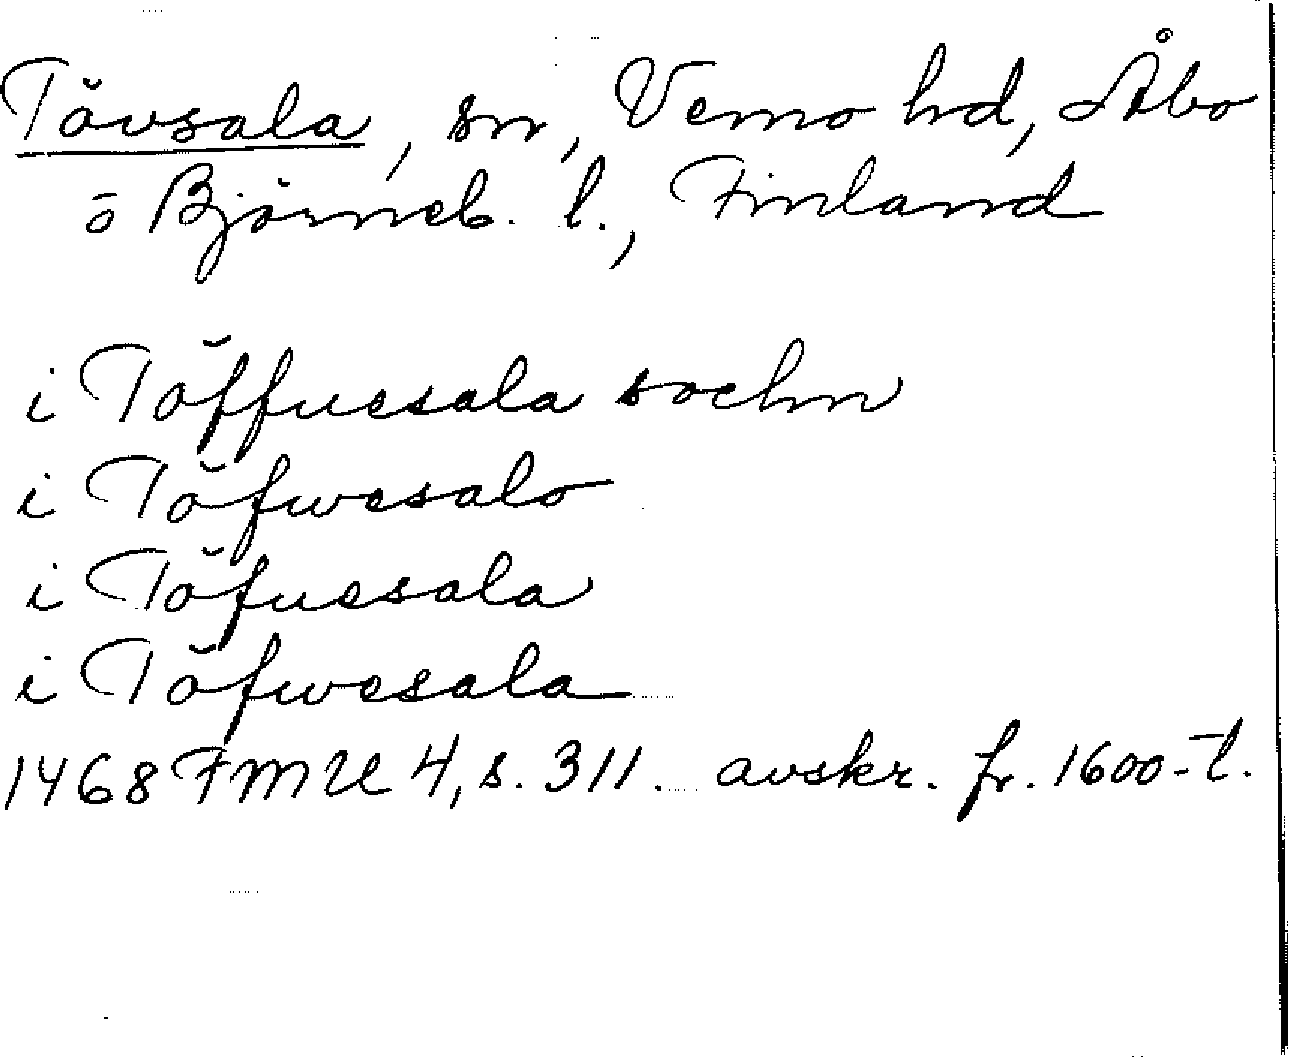 Tövsala, sn, Vemo hd, Åbo
o Björneb. l., Finland
i Töffuesala sochn
i Töfwesalo
i Töfuesala
i Töfwesala
1468 FMU 4, s. 311. avskr. fr. 1600-t.